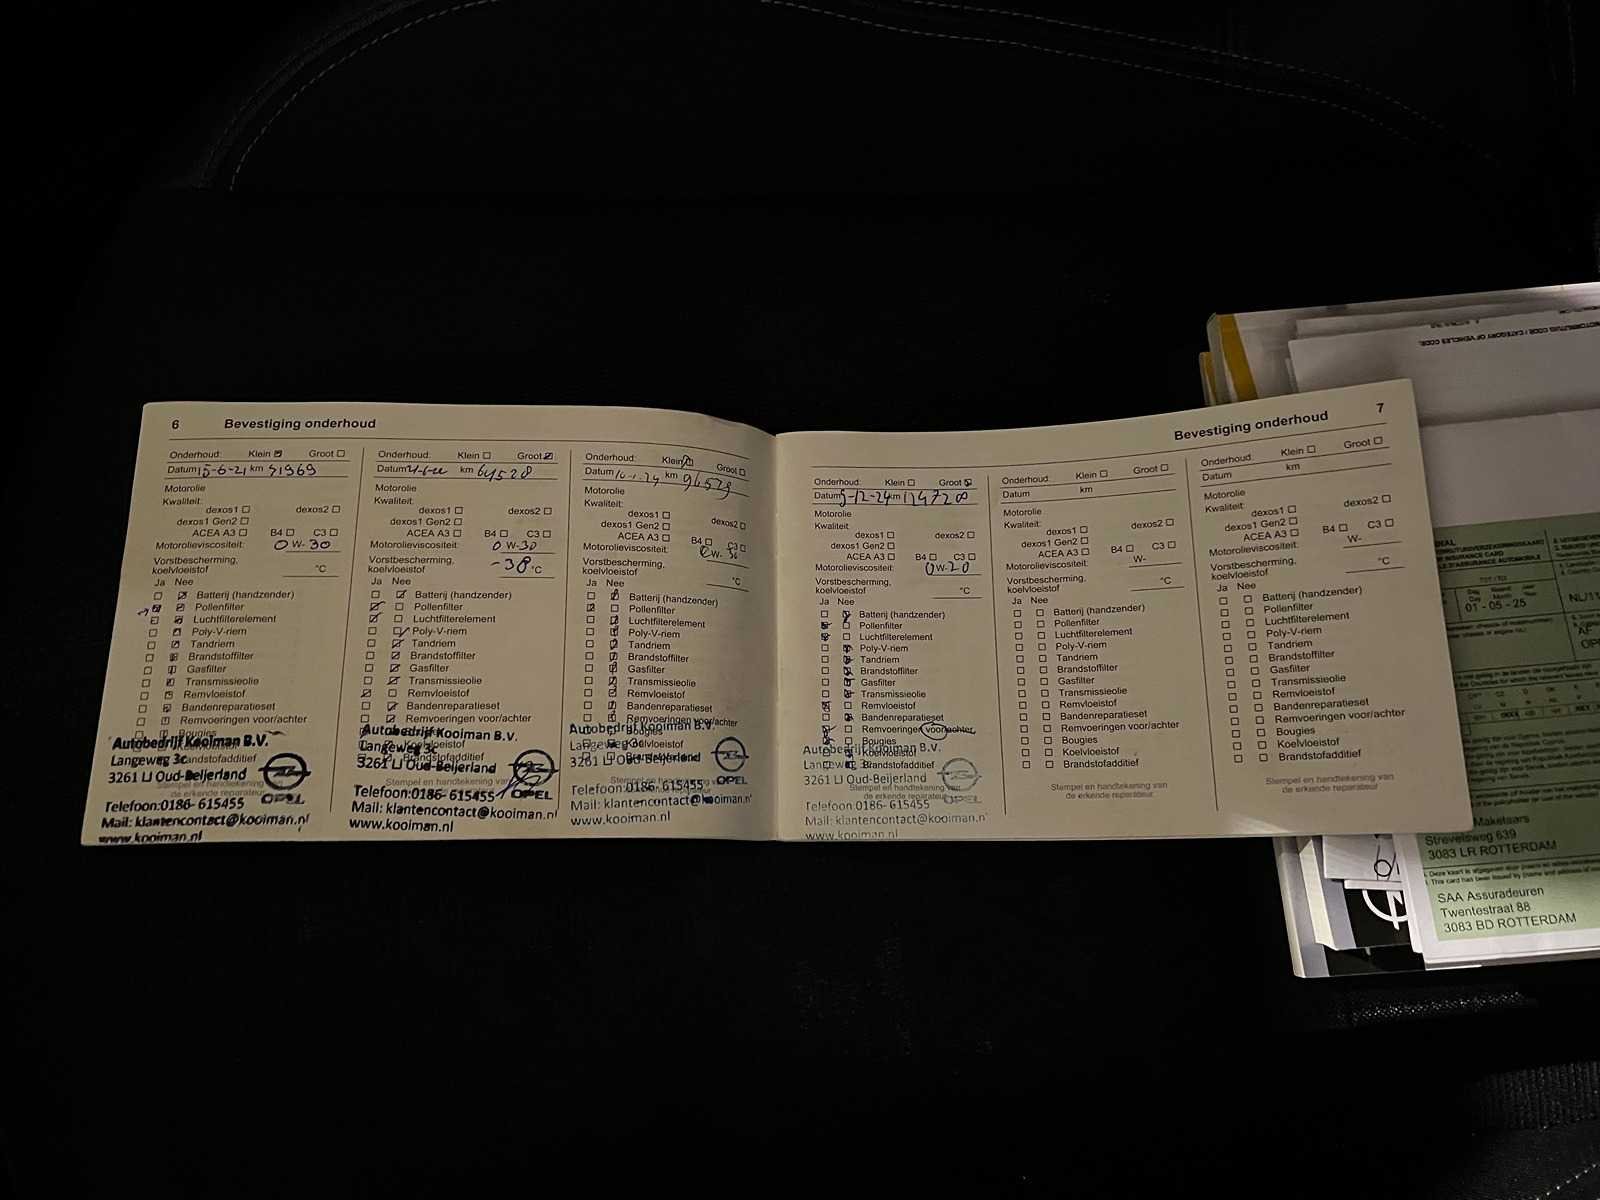 6 Bevestiging onderhoud
Onderhoud: Klein Groot
Datum 15-6-21 km 51969
Motorolie
Kwaliteit:
dexos1 dexos2
dexos1 Gen2
ACEA A3 B4 C3
Motorolieviscositeit: 0 W- 30
Vorstbescherming,
koelvloeistof °C
Ja Nee
Batterij (handzender)
Pollenfilter
Luchtfilterelement
Poly-V-riem
Tandriem
Brandstoffilter
Gasfilter
Transmissieolie
Remvloeistof
Bandenreparatieset
Remvoeringen voor/achter
Bougies
Brandstofadditief
Stempel en handtekening van
de erkende reparateur
Autobedrijf Kooiman B.V.
Langeweg 3c
3261 LJ Oud-Beijerland
OPEL
Telefoon:0186- 615455
Mail: klantencontact@kooiman.nl
www.kooiman.nl
Onderhoud: Klein Groot
Datum km 64528
Motorolie
Kwaliteit:
dexos1 dexos2
dexos1 Gen2
ACEA A3 B4 C3
Motorolieviscositeit: 0 W-30
Vorstbescherming,
koelvloeistof -38 °C
Ja Nee
Batterij (handzender)
Pollenfilter
Luchtfilterelement
Poly-V-riem
Tandriem
Brandstoffilter
Gasfilter
Transmissieolie
Remvloeistof
Bandenreparatieset
Remvoeringen voor/achter
Koelvloeistof
Brandstofadditief
Stempel en handtekening van
Autobedrijf Kooiman B.V.
Langeweg 3c
3261 LJ Oud-Beijerland
OPEL
Telefoon:0186- 615455
Mail: klantencontact@kooiman.nl
www.kooiman.nl
Onderhoud: Klein Groot
Datum 10-1-24 km 96579
Motorolie
Kwaliteit:
dexos1 dexos2
dexos1 Gen2
ACEA A3 B4 C3
Motorolieviscositeit: 0 W- 30
Vorstbescherming,
koelvloeistof °C
Ja Nee
Batterij (handzender)
Pollenfilter
Luchtfilterelement
Poly-V-riem
Tandriem
Brandstoffilter
Gasfilter
Transmissieolie
Remvloeistof
Bandenreparatieset
Remvoeringen voor/achter
Bougies
Koelvloeistof
Brandstofadditief
Stempel en handtekening van
de erkende reparateur
Autobedrijf Kooiman B.V.
Langeweg 3c
3261 LJ Oud-Beijerland
OPEL
Telefoon:0186- 615455
Mail: klantencontact@kooiman.nl
www.kooiman.nl
Bevestiging onderhoud 7
Onderhoud: Klein Groot
Datum 5-12-24 km 1247200
Motorolie
Kwaliteit:
dexos1 dexos2
dexos1 Gen2
ACEA A3 B4 C3
Motorolieviscositeit: 0W-20
Vorstbescherming,
koelvloeistof °C
Ja Nee
Batterij (handzender)
Pollenfilter
Luchtfilterelement
Poly-V-riem
Tandriem
Brandstoffilter
Gasfilter
Transmissieolie
Remvloeistof
Bandenreparatieset
Remvoeringen voor/achter
Bougies
Koelvloeistof
Brandstofadditief
Stempel en handtekening van
de erkende reparateur
Autobedrijf Kooiman B.V.
Langeweg 3c
3261 LJ Oud-Beijerland
OPEL
Telefoon:0186- 615455
Mail: klantencontact@kooiman.nl
www.kooiman.nl
Onderhoud: Klein Groot
Datum km
Motorolie
Kwaliteit:
dexos1 dexos2
dexos1 Gen2
ACEA A3 B4 C3
Motorolieviscositeit: W-
Vorstbescherming,
koelvloeistof °C
Ja Nee
Batterij (handzender)
Pollenfilter
Luchtfilterelement
Poly-V-riem
Tandriem
Brandstoffilter
Gasfilter
Transmissieolie
Remvloeistof
Bandenreparatieset
Remvoeringen voor/achter
Bougies
Koelvloeistof
Brandstofadditief
Stempel en handtekening van
de erkende reparateur
Onderhoud: Klein Groot
Datum km
Motorolie
Kwaliteit:
dexos1 dexos2
dexos1 Gen2
ACEA A3 B4 C3
Motorolieviscositeit: W-
Vorstbescherming,
koelvloeistof °C
Ja Nee
Batterij (handzender)
Pollenfilter
Luchtfilterelement
Poly-V-riem
Tandriem
Brandstoffilter
Gasfilter
Transmissieolie
Remvloeistof
Bandenreparatieset
Remvoeringen voor/achter
Bougies
Koelvloeistof
Brandstofadditief
Stempel en handtekening van
de erkende reparateur
CATEGORY OF VEHICLES CODE:
INSURANCE CARD
D'ASSURANCE AUTOMOBILE
01 - 05 - 25
NL/11
Makelaars
Strevelsweg 639
3083 LR ROTTERDAM
SAA Assuradeuren
Twentestraat 88
3083 BD ROTTERDAM